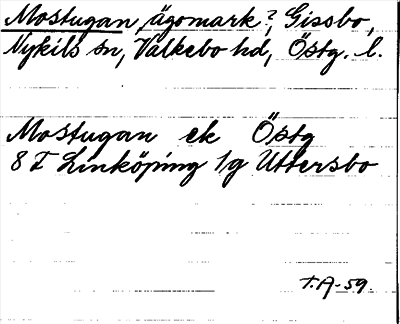 Mostugan, ägomark?, Gissbo,
Nykils sn, Valkebo hd, Östg. l.
Mostugan ek Östg
8 F Linköping 1g Uttersbo
T.A-59.